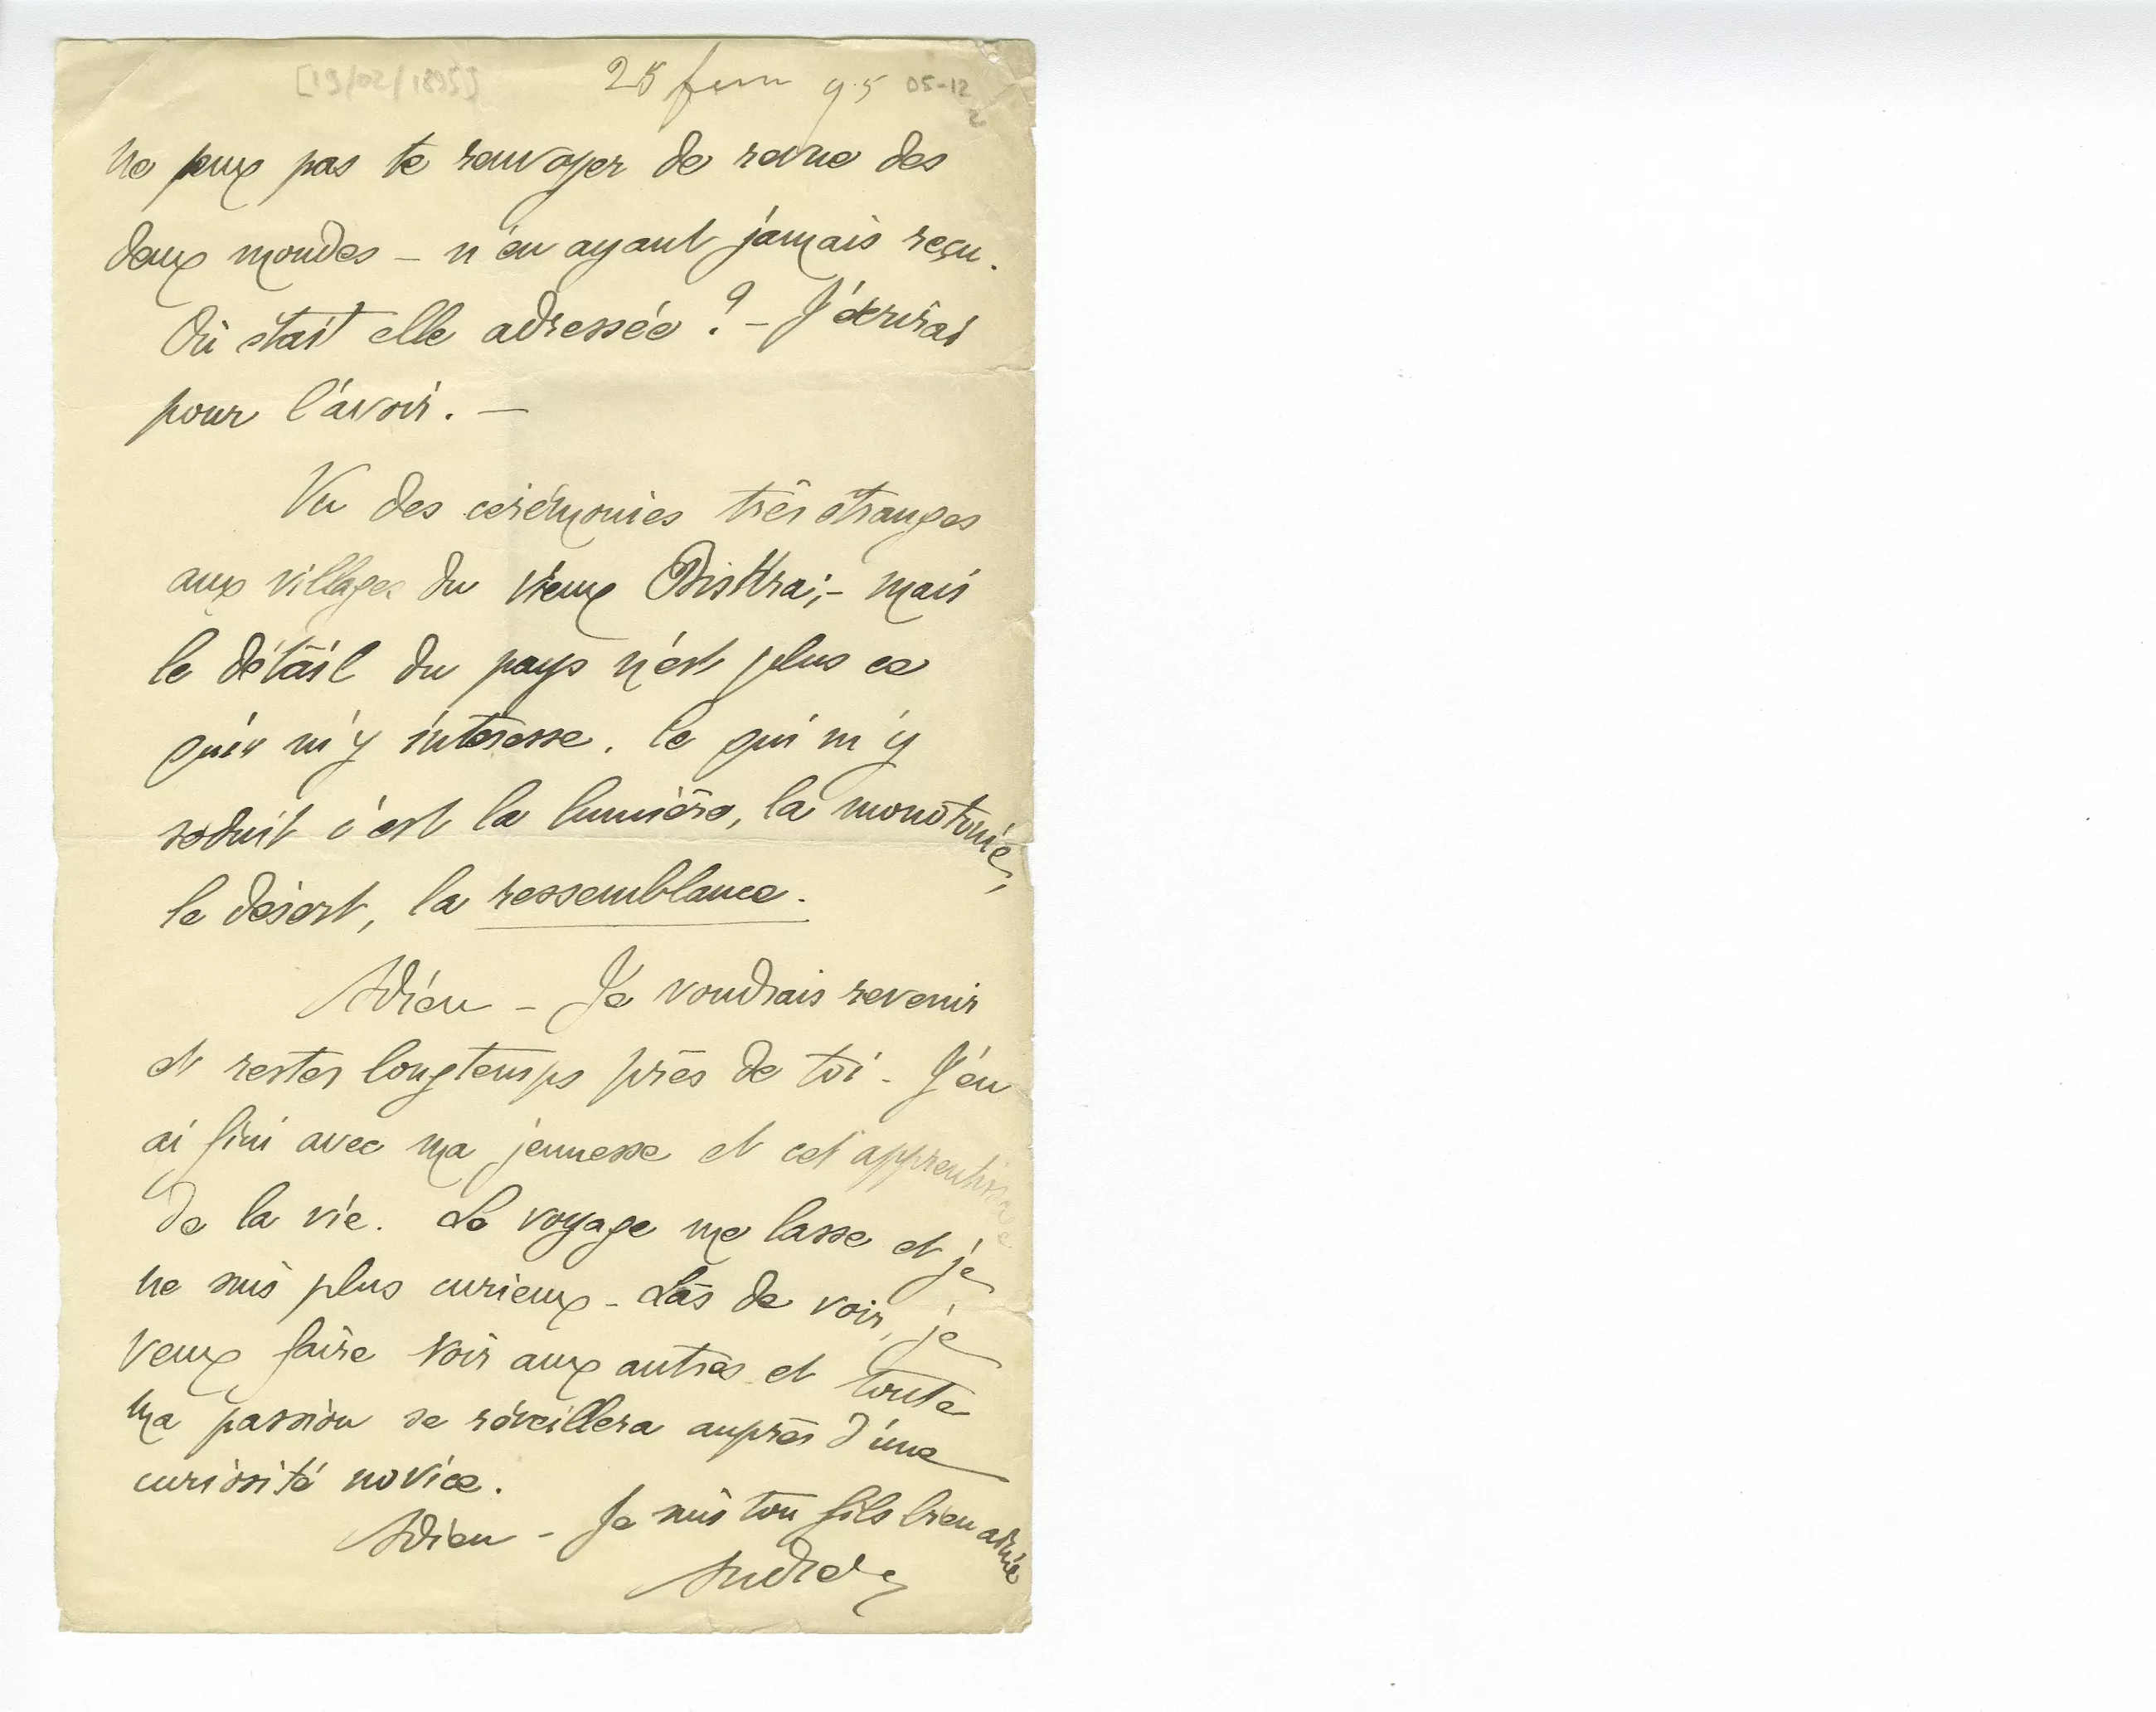 [19/02/1895]
25 95 05-12
2
ne peux pas te renvoyer de revue des
deux mondes – n'en ayant jamais reçu.
Où était elle adressée ? – J'écrirai
pour l'avoir. –
Vu des cérémonies très étranges
aux villages du vieux Biskra ; – mais
le détail du pays n'est plus ce
qui m'y intéresse. Ce qui m'y
séduit c'est la lumière, la monotonie,
le désert, la ressemblance.
Adieu – Je voudrais revenir
et rester longtemps près de toi – J'en
ai fini avec ma jeunesse et cet apprentissage
de la vie. Le voyage me lasse et je
ne suis plus curieux – Las de voir, je
veux faire voir aux autres et toute
ma passion se réveillera auprès d'une
curiosité novice.
Adieu – Je suis ton fils bien aimé
André